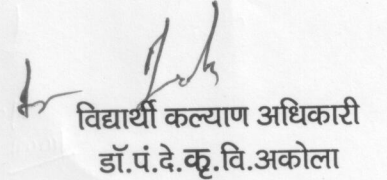 विद्यार्थी कल्याण अधिकारी
डॉ.पं.दे.कृ.वि.अकोला